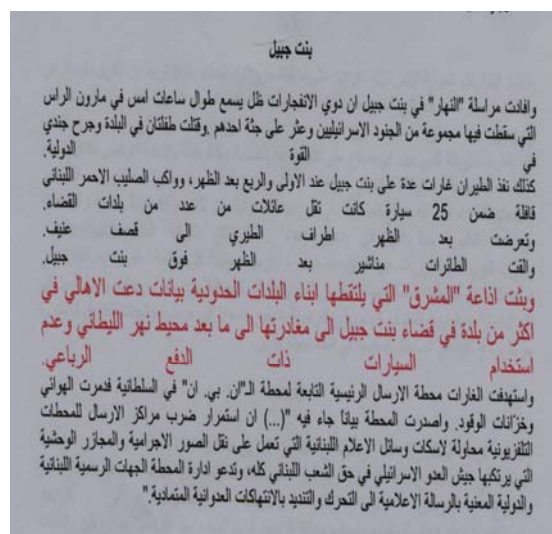 بنت جبيل
وافادت مراسلة "النهار" في بنت جبيل ان دوي الانفجارات ظل يسمع طوال ساعات امس في مارون الراس
التي سقطت فيها مجموعة من الجنود الاسرائيليين وعثر على جثة احدهم .وقتلت طفلتان في البلدة وجرح جندي
في القوة الدولية.
كذلك نفذ الطيران غارات عدة على بنت جبيل عند الاولى والربع بعد الظهر، وواكب الصليب الاحمر اللبناني
قافلة ضمن 25 سيارة كانت تقل عائلات من عدد من بلدات القضاء.
وتعرضت بعد الظهر اطراف الطيري الى قصف عنيف.
والقت الطائرات مناشير بعد الظهر فوق بنت جبيل.
وبثت اذاعة "المشرق" التي يلتقطها ابناء البلدات الحدودية بيانات دعت الاهالي في
اكثر من بلدة في قضاء بنت جبيل الى مغادرتها الى ما بعد محيط نهر الليطاني وعدم
استخدام السيارات ذات الدفع الرباعي.
واستهدفت الغارات محطة الارسال الرئيسية التابعة لمحطة الـ"ان. بي. ان" في السلطانية فدمرت الهوائي
وخزانات الوقود. واصدرت المحطة بيانا جاء فيه "(...) ان استمرار ضرب مراكز الارسال للمحطات
التلفزيونية محاولة لاسكات وسائل الاعلام اللبنانية التي تعمل على نقل الصور الاجرامية والمجازر الوحشية
التي يرتكبها جيش العدو الاسرائيلي في حق الشعب اللبناني كله، وتدعو ادارة المحطة الجهات الرسمية اللبنانية
والدولية المعنية بالرسالة الاعلامية الى التحرك والتنديد بالانتهاكات العدوانية المتمادية."